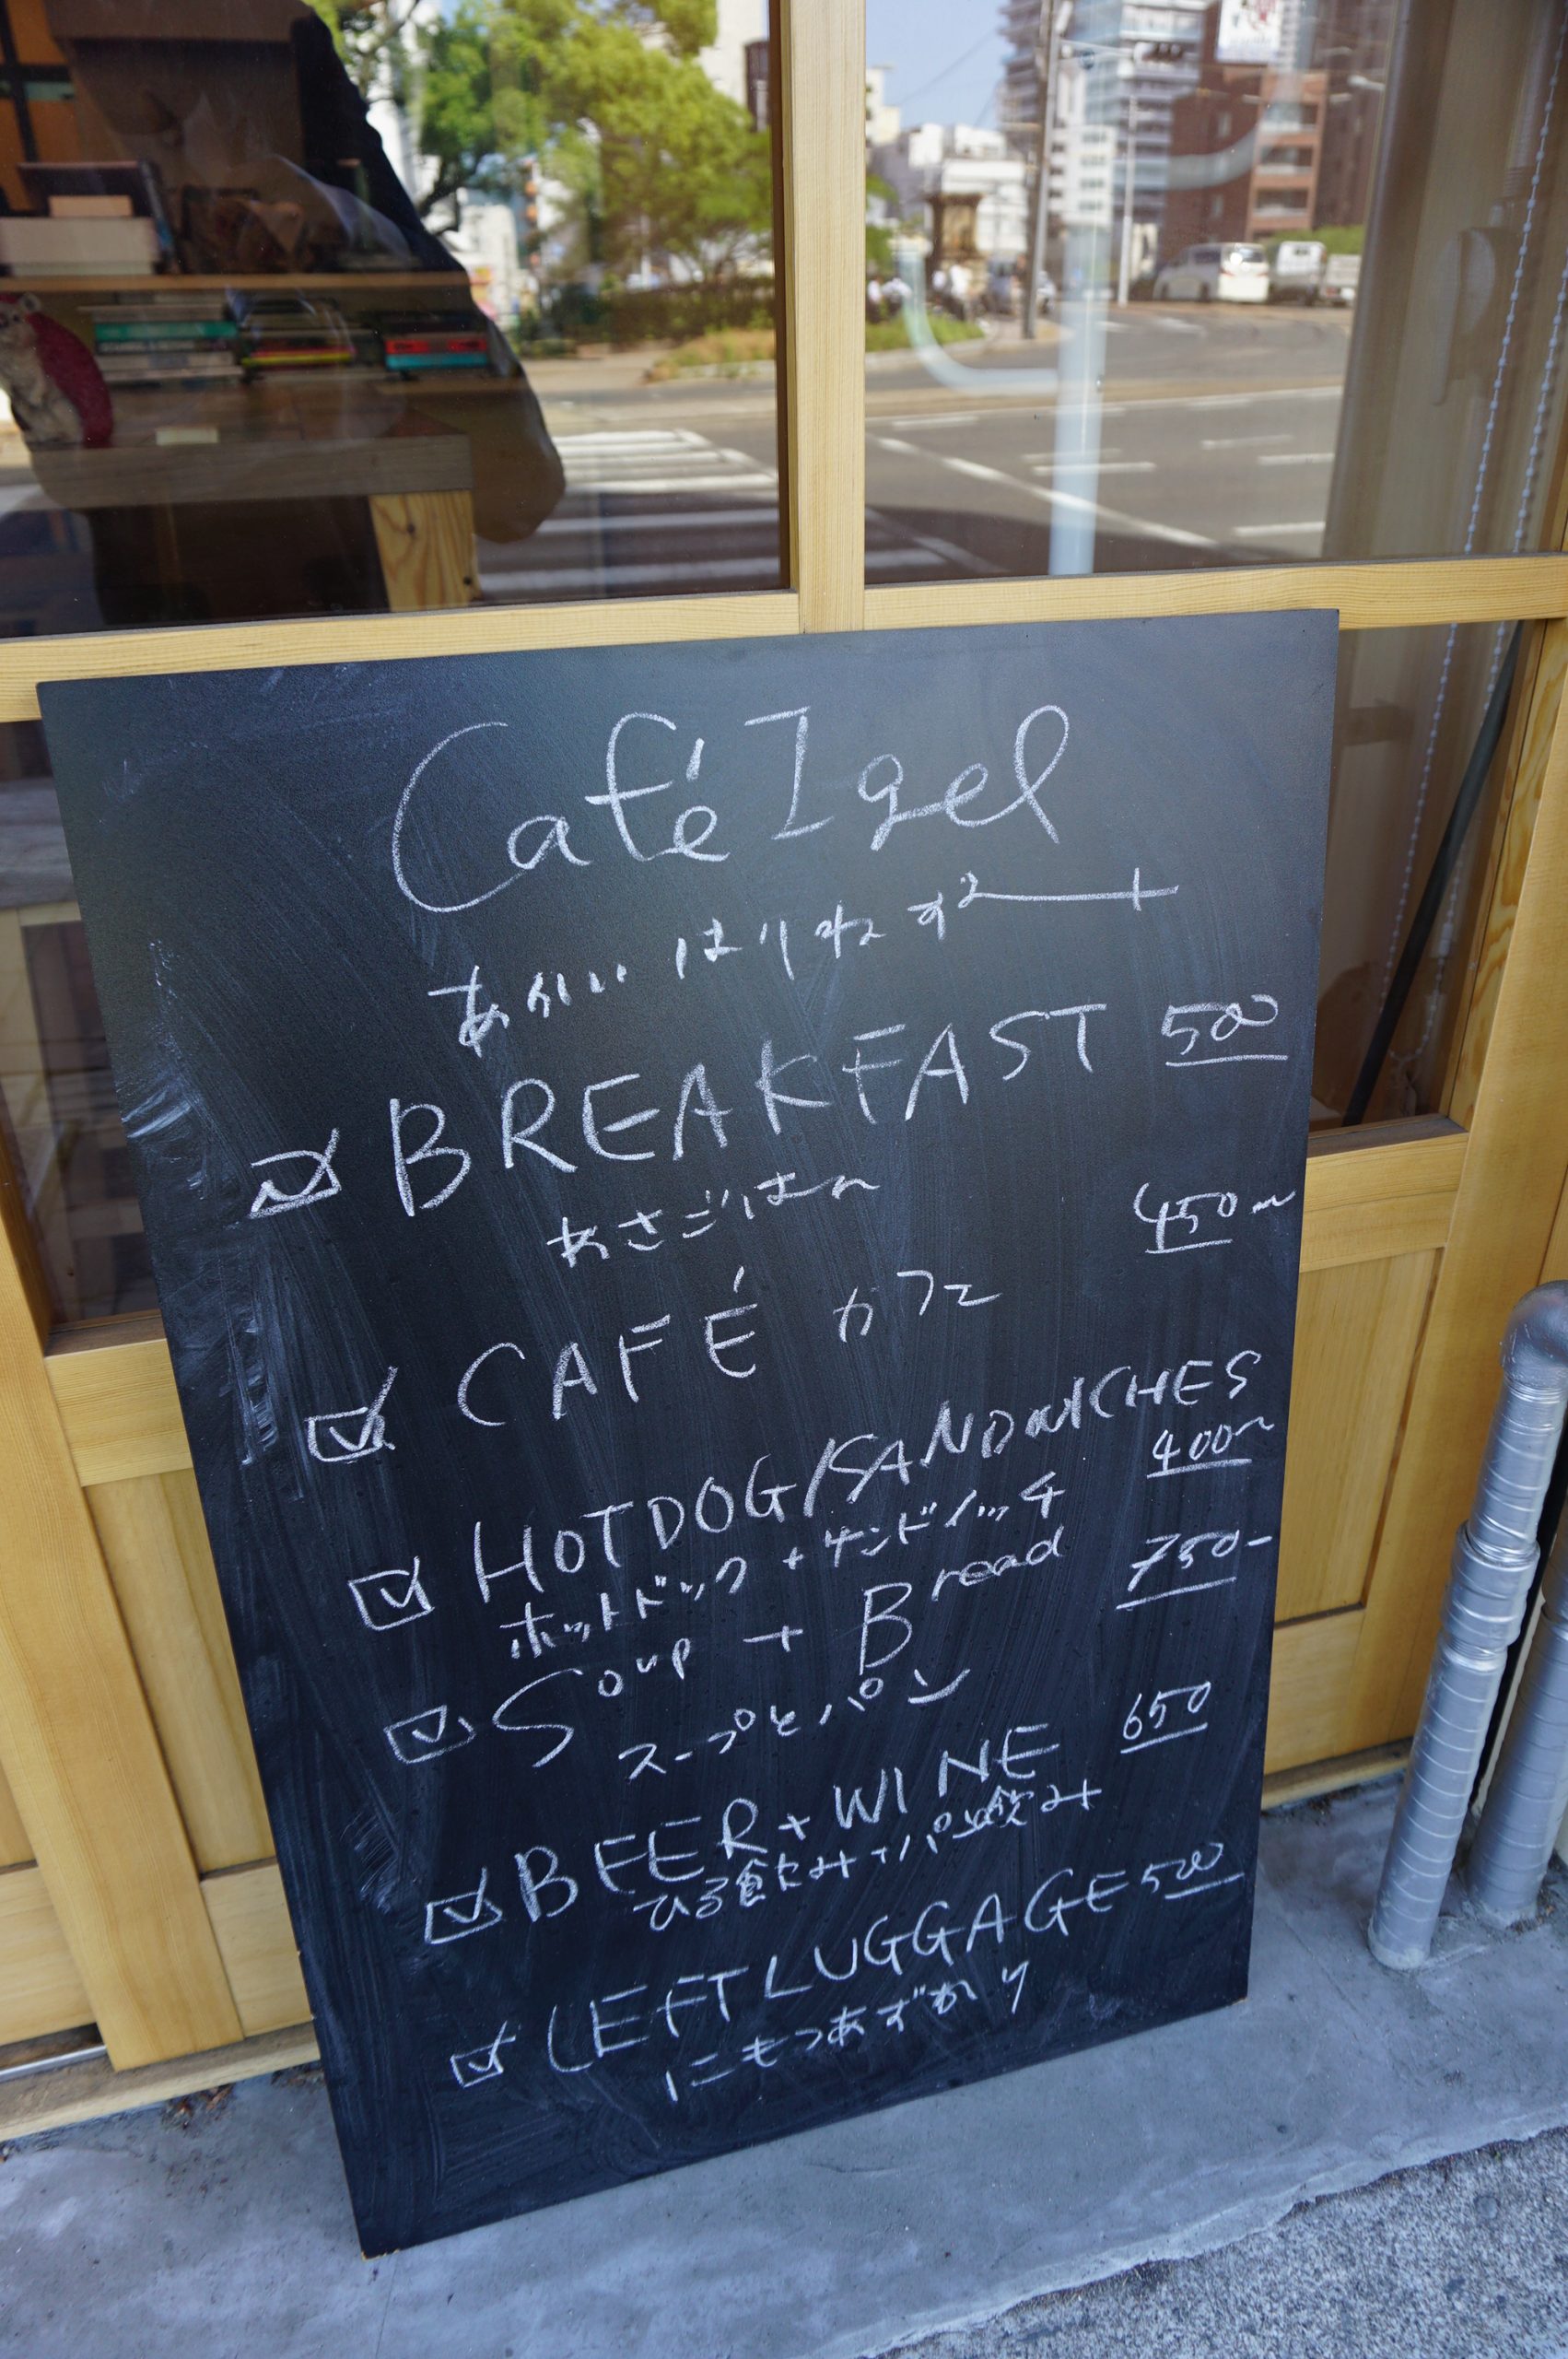 Café Igel
あかいはりねずみ
BREAKFAST 500
あさごはん
450〜
CAFÉ カフェ
HOTDOG/SANDWICHES
400〜
ホットドック+サンドイッチ
Soup + Bread 750-
スープとパン
BEER+WINE 650
ひる飲み+パン飲み
LEFT LUGGAGE 500
にもつあずかり